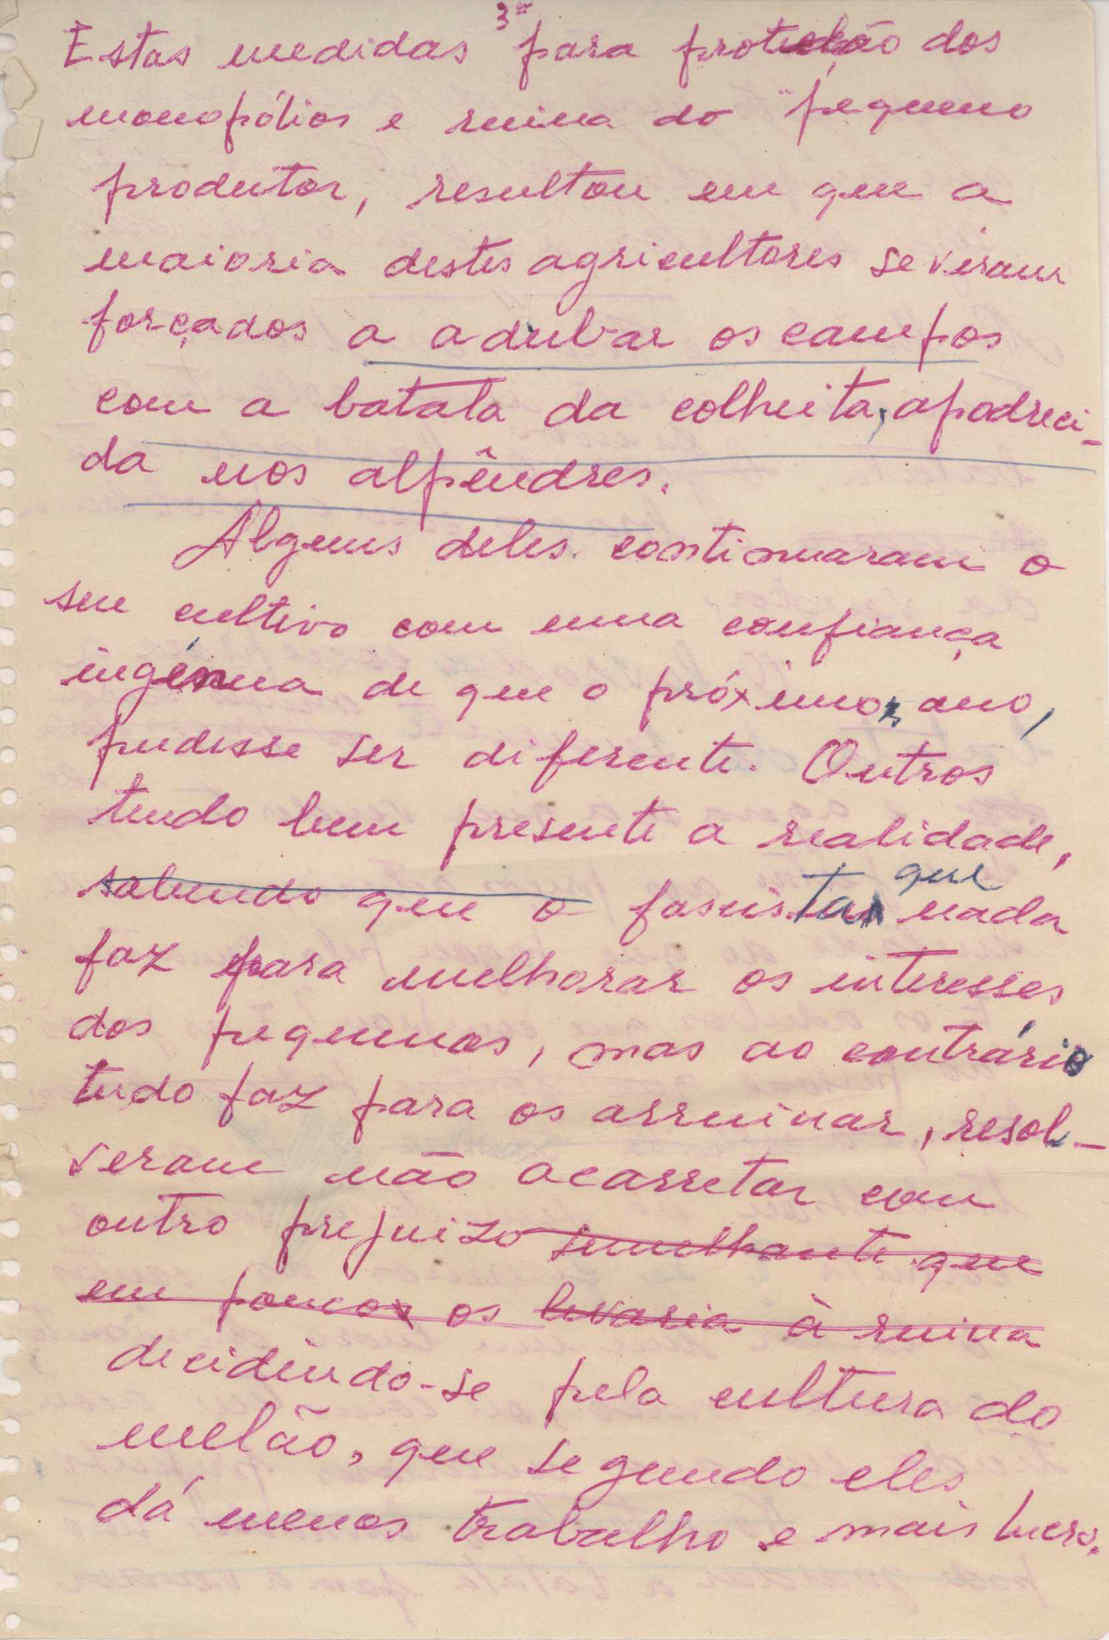 3º
Estas medidas para protecção dos
monopólios e ruina do pequeno
produtor, resultou em que a
maioria destes agricultores se viram
forçados a adubar os campos
com a batata da colheita, apodreci-
da nos alpêndres.
Alguns deles continuaram o
seu cultivo com uma confiança
ingénua de que o próximo ano,
pudesse ser diferente. Outros
tendo bem presente a realidade,
que
sabendo que o fascista nada
faz para melhorar os interesses
dos pequenos, mas ao contrário
tudo faz para os arruinar, resol-
veram não acarretar com
outro prejuizo semelhante que
em pouco os levaria à ruina
decidindo-se pela cultura do
melão, que segundo eles
dá menos trabalho e mais lucro.